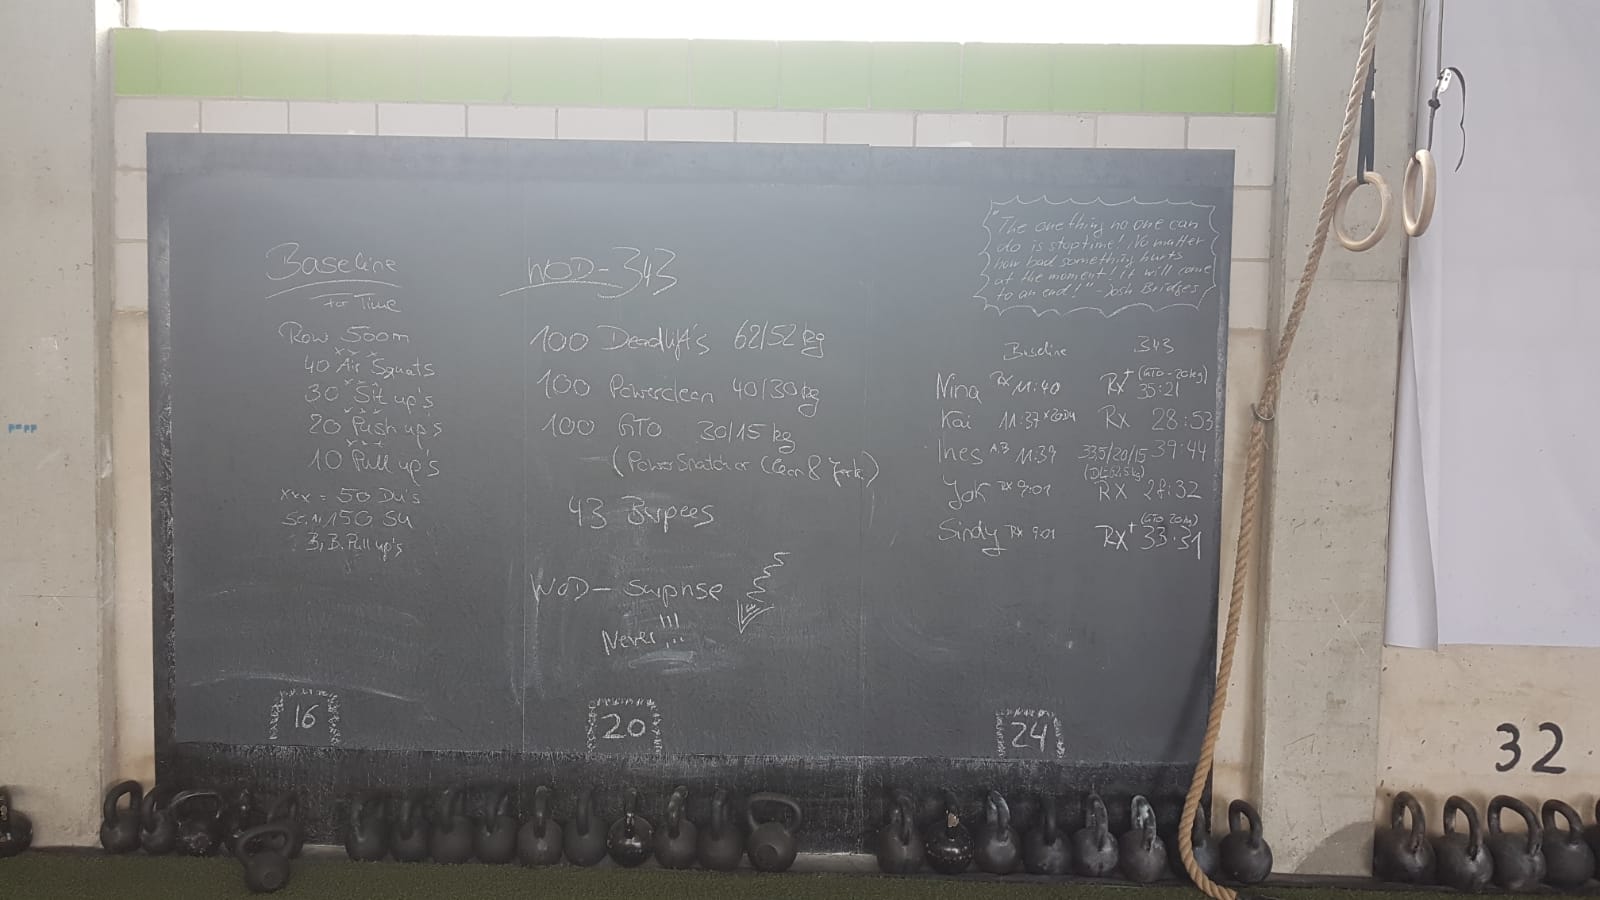 Baseline
For Time
Row 500m
xxx
40 Air Squats
xxx
30 Sit up's
xxx
20 Push up's
xxx
10 Pull up's
xxx = 50 Du's
150 Su
Pull up's
16
WOD-343
100 Deadlift's 62/52 kg
100 Powerclean 40/30 kg
100 GTO 30/15 kg
(Power Snatch or Clean & Jerk)
43 Burpees
WOD- Surprise
Never !!!
20
"The one thing no one can
do is stop time! No matter
how bad something hurts
at the moment! it will come
to an end!" - Josh Bridges
Baseline 343
Nina Rx 11:40 Rx+ (GTO-20kg) 35:21
Kai 11:37 Rx 28:53
Ines 11:39 33,5/20/15 39:44
Rx 9:01 RX 28:32
Sindy Rx 9:01 Rx+ (GTO 20kg) 33:31
24
32